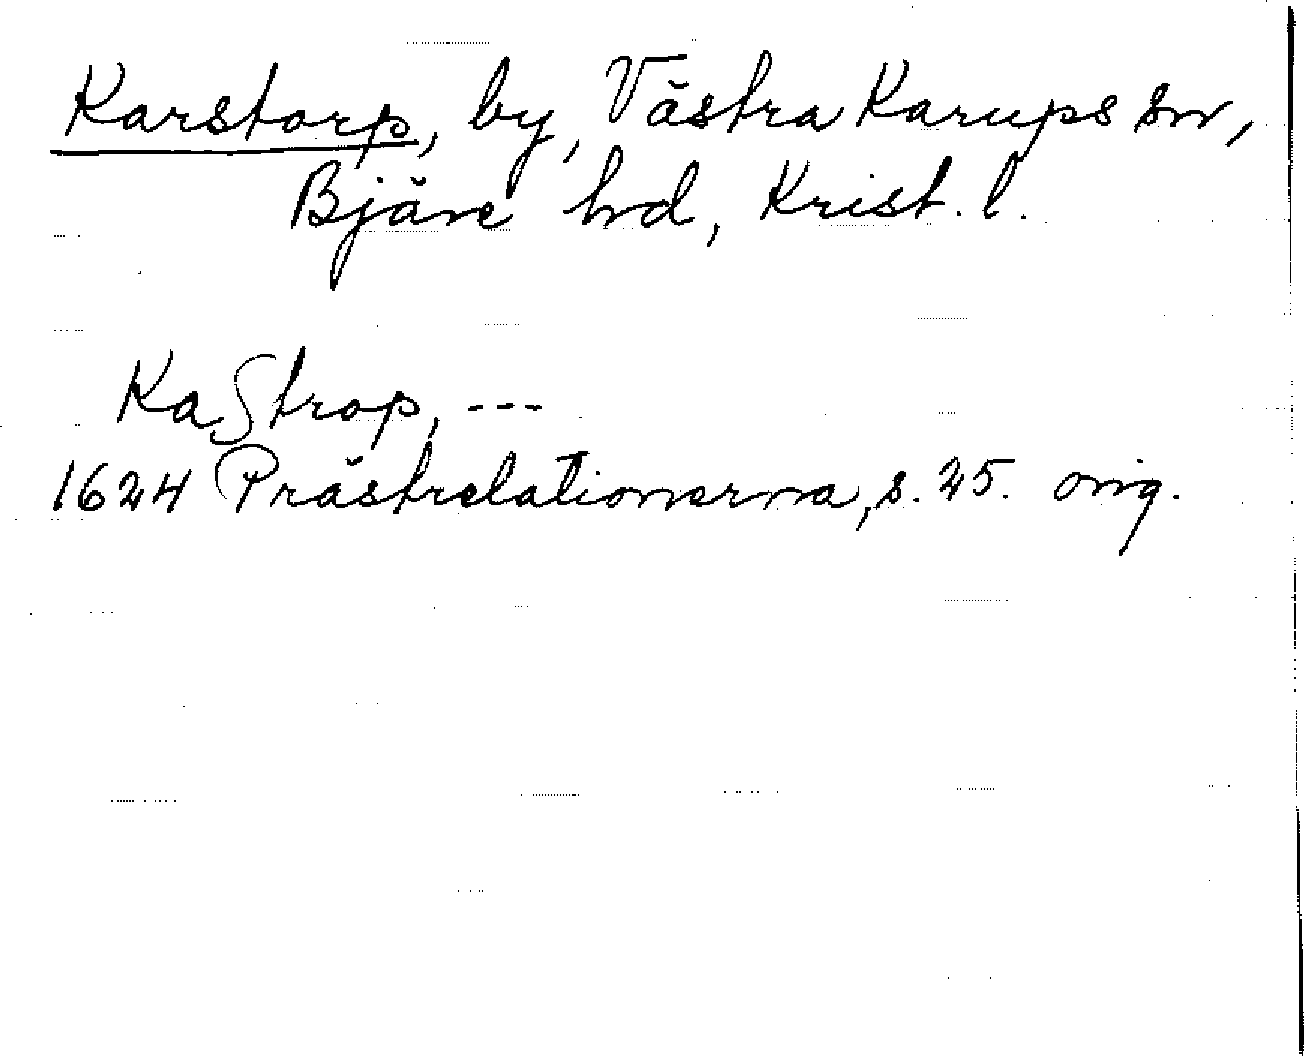 Karstorp, by, Västra Karups sn,
Bjäre hd, Krist. l.
KaStrop, ---
1624 Prästrelationerna, s. 25. orig.